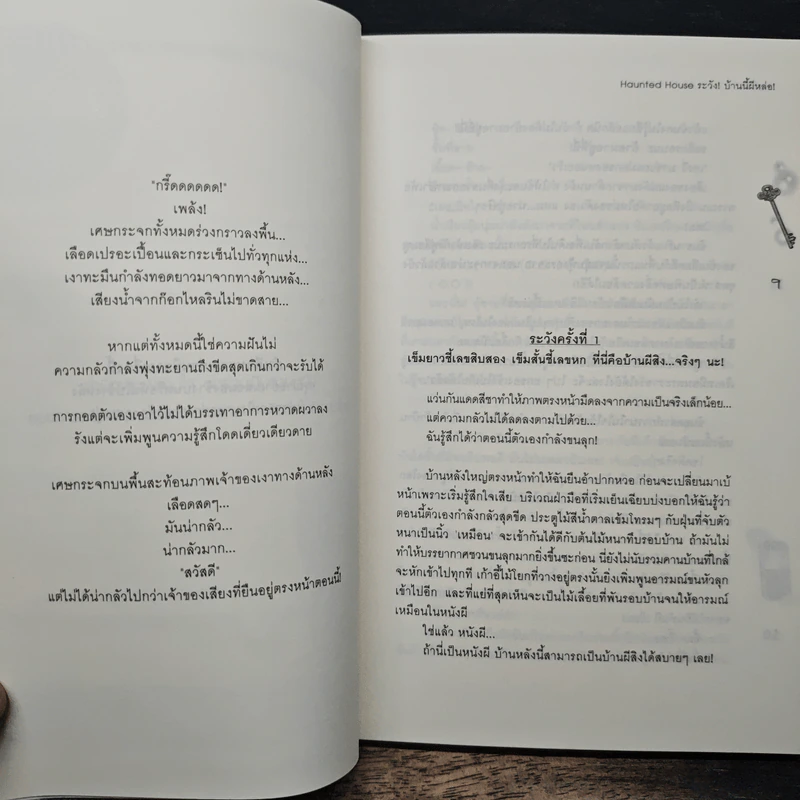 "กรี๊ดดดดดด!"
เพล้ง!
เศษกระจกทั้งหมดร่วงกราวลงพื้น...
เลือดเปรอะเปื้อนและกระเซ็นไปทั่วทุกแห่ง...
เงาทะมึนกำลังทอดยาวมาจากทางด้านหลัง...
เสียงน้ำจากก๊อกไหลรินไม่ขาดสาย...
หากแต่ทั้งหมดนี้ใช่ความฝันไม่
ความกลัวกำลังพุ่งทะยานถึงขีดสุดเกินกว่าจะรับได้
การกอดตัวเองเอาไว้ไม่ได้บรรเทาอาการหวาดผวาลง
รังแต่จะเพิ่มพูนความรู้สึกโดดเดี่ยวเดียวดาย
เศษกระจกบนพื้นสะท้อนภาพเจ้าของเงาทางด้านหลัง
เลือดสดๆ...
มันน่ากลัว...
น่ากลัวมาก...
"สวัสดี"
แต่ไม่ได้น่ากลัวไปกว่าเจ้าของเสียงที่ยืนอยู่ตรงหน้าตอนนี้!
Haunted House ระวัง! บ้านนี้ผีหล่อ!
ระวังครั้งที่ 1
เข็มยาวชี้เลขสิบสอง เข็มสั้นชี้เลขหก ที่นี่คือบ้านผีสิง...จริงๆ นะ!
แว่นกันแดดสีชาทำให้ภาพตรงหน้ามืดลงจากความเป็นจริงเล็กน้อย...
แต่ความกลัวไม่ได้ลดลงตามไปด้วย...
ฉันรู้สึกได้ว่าตอนนี้ตัวเองกำลังขนลุก!
บ้านหลังใหญ่ตรงหน้าทำให้ฉันยืนอ้าปากหวอ ก่อนจะเปลี่ยนมาเบ้
หน้าเพราะเริ่มรู้สึกใจเสีย บริเวณฝ่ามือที่เริ่มเย็นเฉียบบ่งบอกให้ฉันรู้ว่า
ตอนนี้ตัวเองกำลังกลัวสุดขีด ประตูไม้สีน้ำตาลเข้มโทรมๆ กับฝุ่นที่จับตัว
หนาเป็นนิ้ว 'เหมือน' จะเข้ากันได้ดีกับต้นไม้หนาทึบรอบบ้าน ถ้ามันไม่
ทำให้บรรยากาศชวนขนลุกมากยิ่งขึ้นซะก่อน นี่ยังไม่นับรวมคานบ้านที่ใกล้
จะหักเข้าไปทุกที เก้าอี้ไม้โยกที่วางอยู่ตรงนั้นยิ่งเพิ่มพูนอารมณ์ขนหัวลุก
เข้าไปอีก และที่แย่ที่สุดเห็นจะเป็นไม้เลื้อยที่พันรอบบ้านจนให้อารมณ์
เหมือนในหนังผี
ใช่แล้ว หนังผี...
ถ้านี่เป็นหนังผี บ้านหลังนี้สามารถเป็นบ้านผีสิงได้สบายๆ เลย!